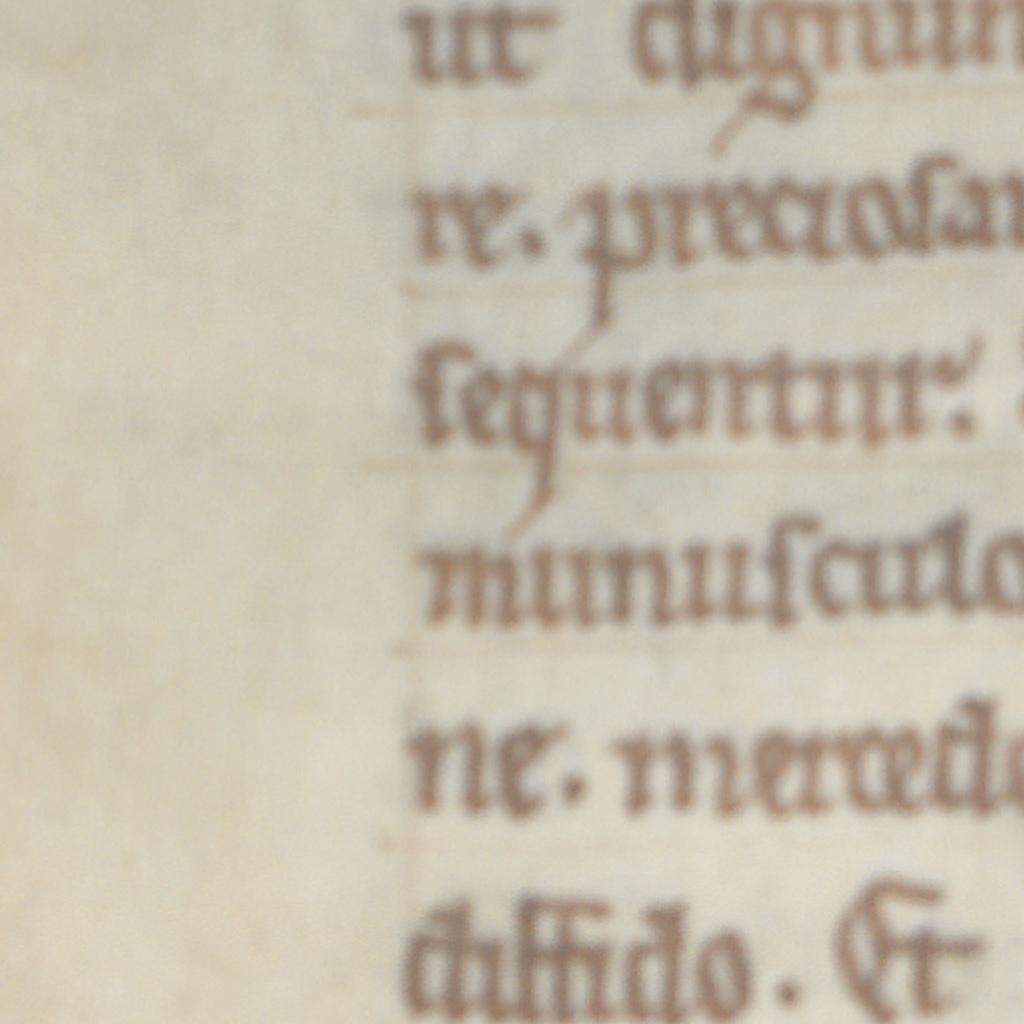 ut dignum
re. preciosar
sequentur.
munusculo
ne. mercede
diffido. Et